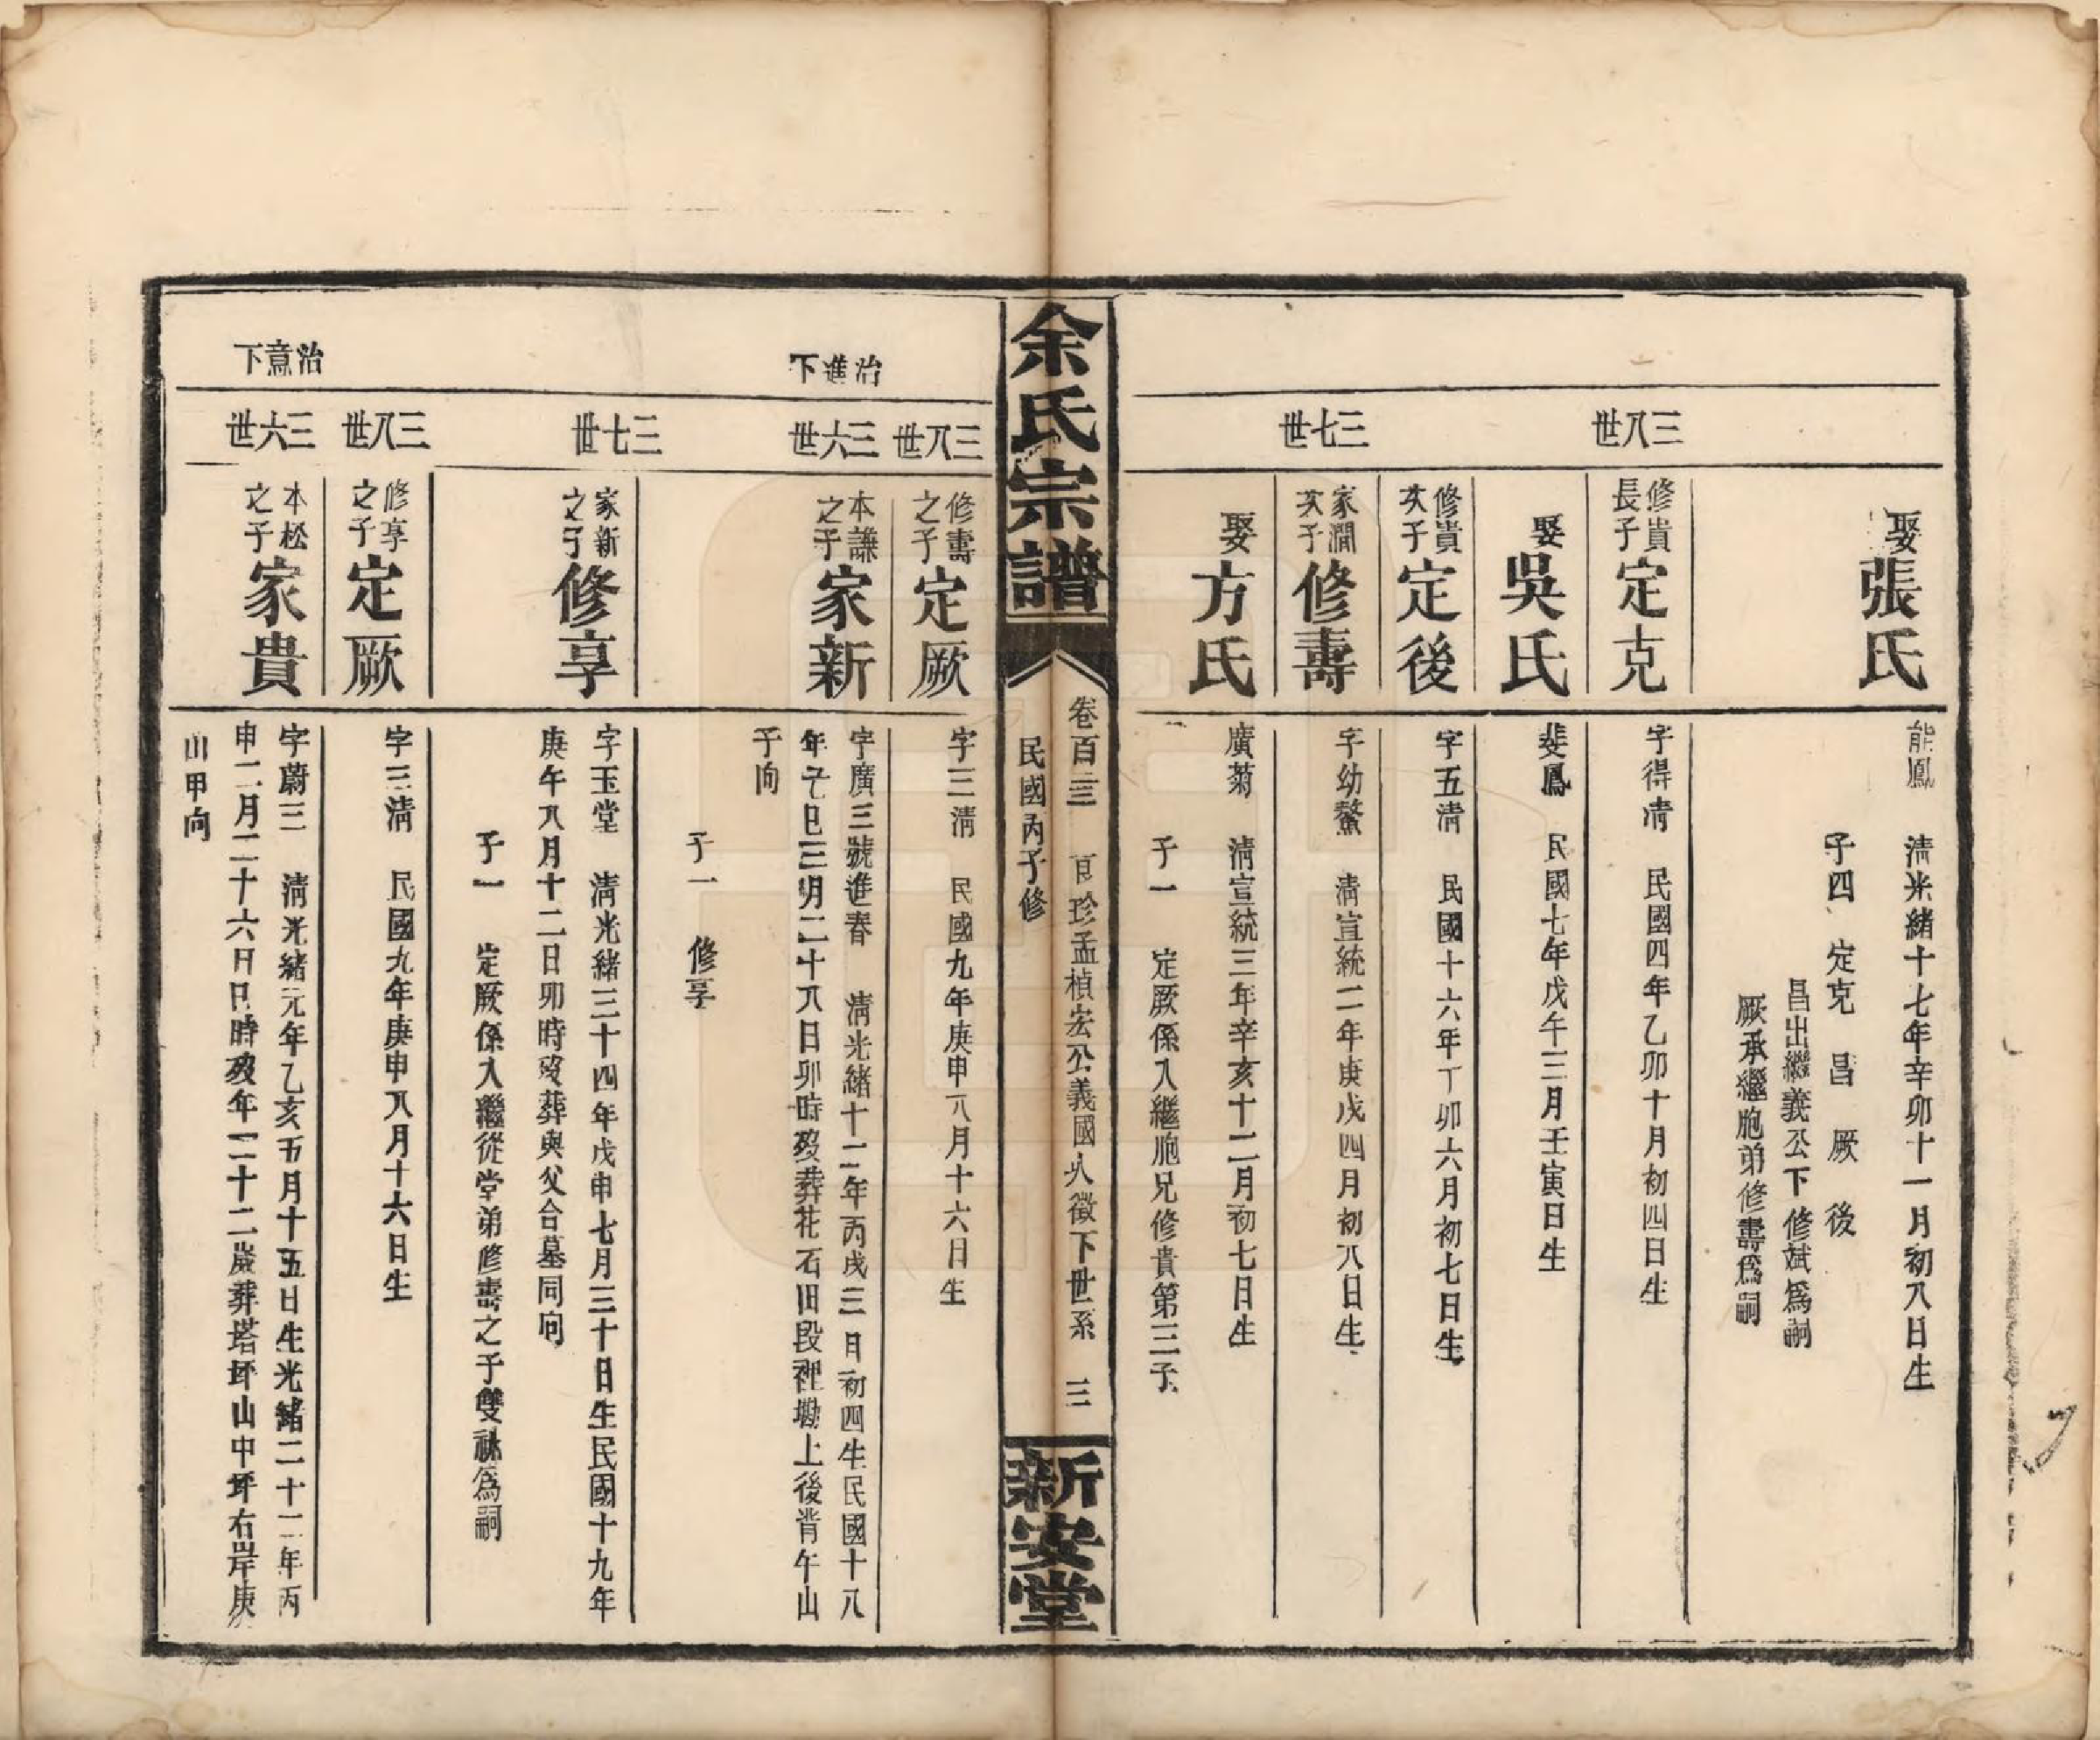 娶張氏
能鳳　清光緒十七年辛卯十一月初八日生
子四　定克　昌　厥　後
昌出繼義公下修斌爲嗣
厥承繼胞弟修壽爲嗣
三八世
修貴長子定克
字得清　民國四年乙卯十月初四日生
娶吳氏
斐鳳　民國七年戊午三月壬寅日生
修貴次子定後
字五清　民國十六年丁卯六月初七日生
三七世
家澗次子修壽
字幼鰲　清宣統二年庚戌四月初八日生
娶方氏
廣菊　清宣統三年辛亥十二月初七日生
子一　定厥係入繼胞兄修貴第三子
余氏宗譜
卷百三　珍孟楨宏公義國火徵下世系　三
民國丙子修
新安堂
三八世
修壽之子定厥
字三清　民國九年庚申八月十六日生
治進下
三六世
本謙之子家新
字廣三號進春　清光緒十二年丙戌三月初四生民國十八
年己巳三月二十八日卯時歿葬花石旧段裡墈上後背午山
子向
子一　修享
三七世
家新之子修享
字玉堂　清光緒三十四年戊申七月三十日生民國十九年
庚午八月十二日卯時歿葬與父合墓同向
子一　定厥係入繼從堂弟修壽之子雙祧爲嗣
三八世
修享之子定厥
字三清　民國九年庚申八月十六日生
治意下
三六世
本松之子家貴
字蔚三　清光緒元年乙亥五月十五日生光緒二十二年丙
申二月二十六日巳時歿年二十二歲葬塔坪山中坪右岸庚
山甲向